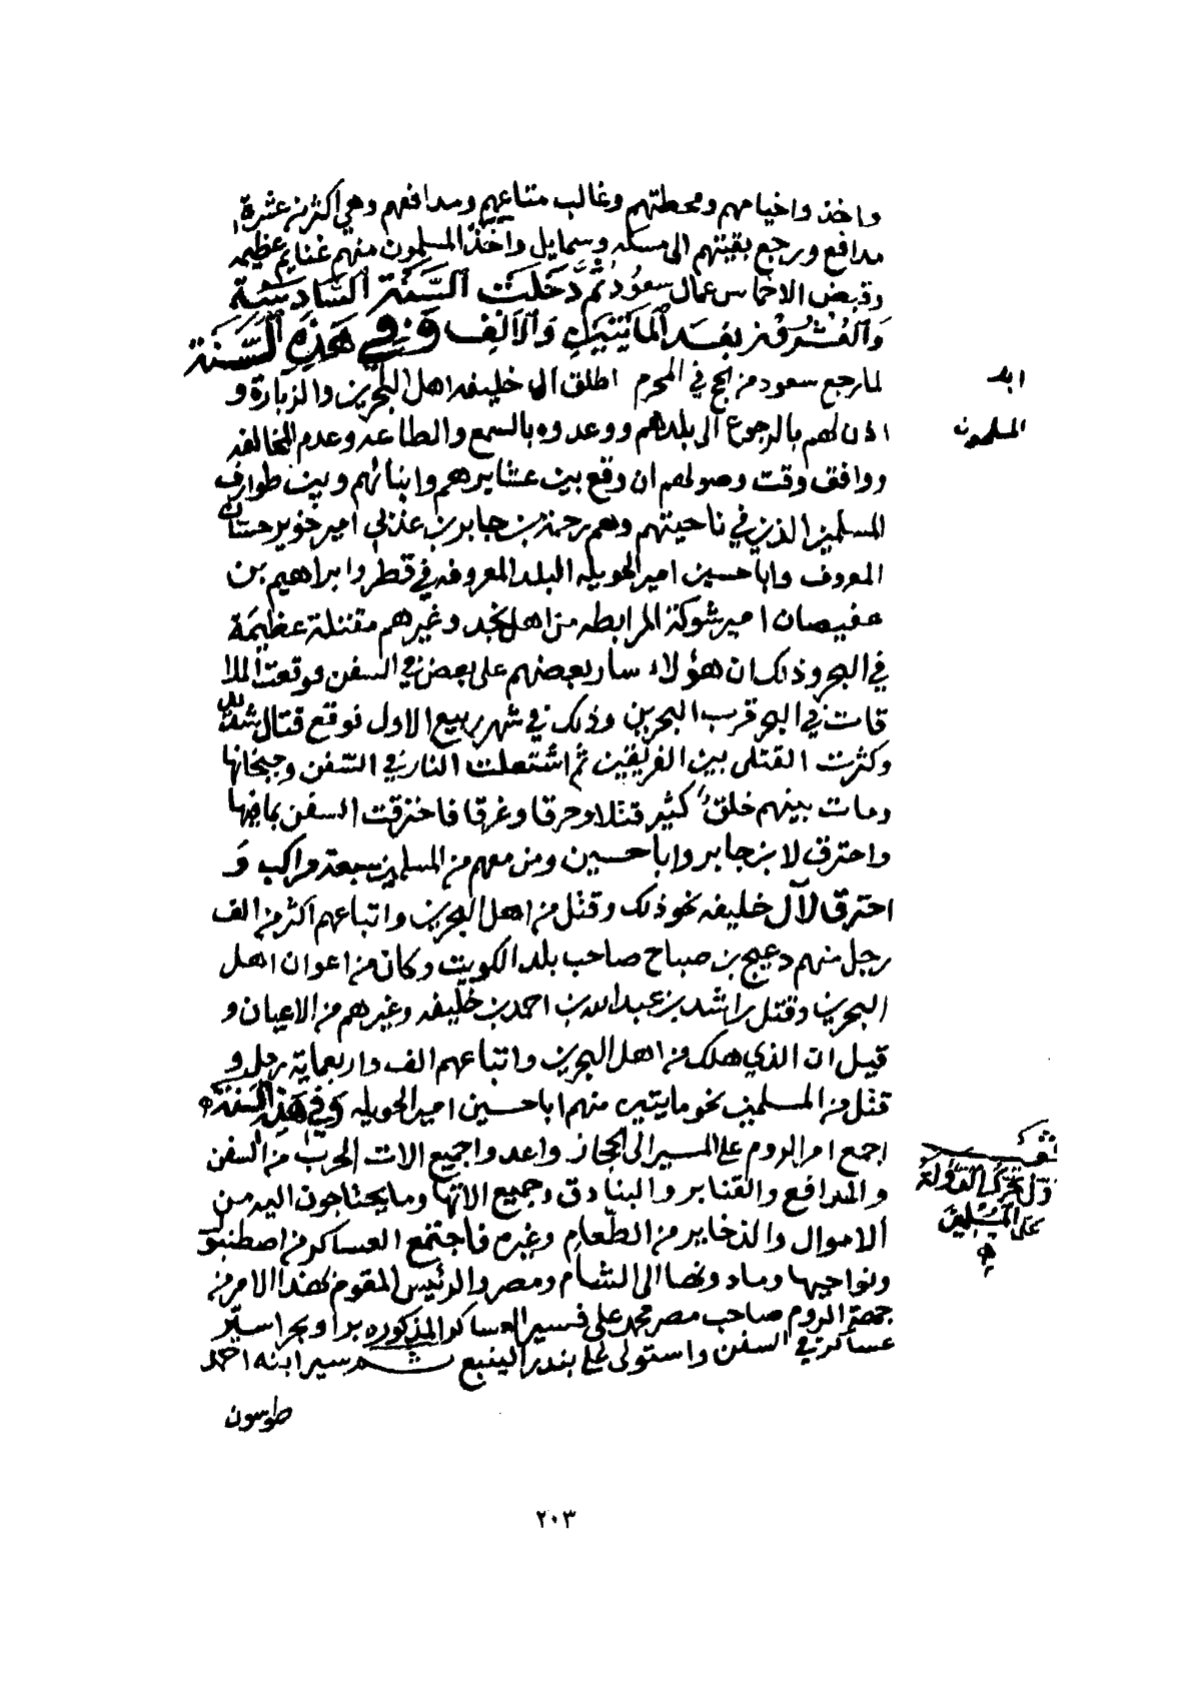 واخذوا خيامهم ومحطتهم وغالب متاعهم ومدافعهم وهي اكثر من عشرة
مدافع ورجع بقيتهم الى مسكه وسمايل واخذ المسلمون منهم غنايم عظيمه
وقبض الاخماس عمال سعود ثُمَّ دَخَلَتْ السَّنَةُ السَّادِسَةُ
وَالعُشْرُونَ بَعْدَ المَايَتَيْنِ وَالاَلِف وَفِي هَذِهِ السَّنَة
لما رجع سعود من الحج في المحرم اطلق ال خليفه اهل البحرين والزبارة و
اذن لهم بالرجوع الى بلدهم ووعدوه بالسمع والطاعه وعدم المخالفه
ووافق وقت وصولهم ان وقع بين عشايرهم وابنائهم وبين طوارف
المسلمين الذين في ناحيتهم وهم رحمة بن جابر بن عذبي امير خوير حسان
المعروف وابا حسين امير الحويله البلد المعروفه في قطر وابراهيم بن
عفيصان امير شوكة المرابطه من اهل نجد وغيرهم مقتلة عظيمة
في البحر وذلك ان هؤلاء سار بعضهم على بعض في السفن فوقعت الملا
قات في البحر قرب البحرين وذلك في شهر ربيع الاول فوقع قتال شديد
وكثرت القتلى بين الفريقين ثم اشتعلت النار في السفن وجبخانها
ومات بينهم خلقٌ كثير قتلا وحرقا وغرقا فاحترقت السفن بما فيها
واحترق لابن جابر وابا حسين ومن معهم من المسلمين سبعة مراكب و
احترق لآل خليفه نحو ذلك وقتل من اهل البحرين واتباعهم اكثر من الف
رجل منهم دعيج بن صباح صاحب بلد الكويت وكان من اعوان اهل
البحرين وقتل راشد بن عبدالله بن احمد بن خليفه وغيرهم من الاعيان و
قيل ان الذي هلك من اهل البحرين واتباعهم الف واربعماية رجل و
قتل من المسلمين نحو مايتين منهم ابا حسين امير الحويله وَفِي هَذِهِ السَّنَة
اجمع امر الروم على المسير الى الحجاز واعدوا جميع الات الحرب من السفن
والمدافع والقنابر والبنادق وجميع الاتها وما يحتاجون اليه من
الاموال والذخاير من الطعام وغيره فاجتمع العساكر من اصطنبول
ونواحيها وما دونها الى الشام ومصر والرئيس المقوم لهذا الامر من
جهة الروم صاحب مصر محمد علي فسير العساكر المذكوره برا وبحرا سيّر
عساكر في السفن واستولى على بندر الينبع ثم سير ابنه احمد
طوسون
المسلمون
على المسلمين
٢٠٣